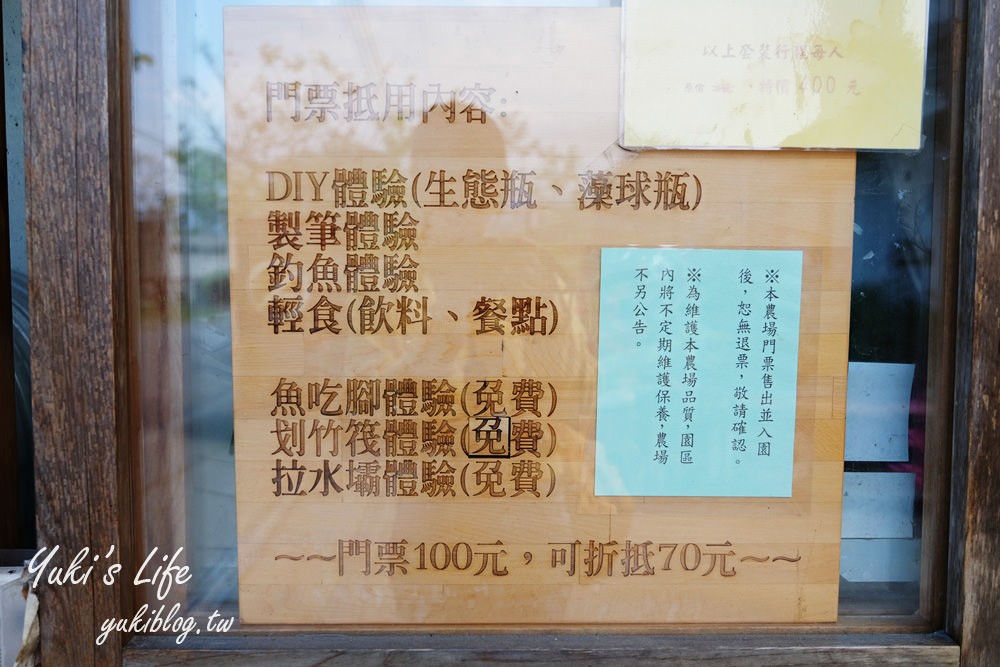 門票抵用內容:
DIY體驗(生態瓶、藻球瓶)
製筆體驗
釣魚體驗
輕食(飲料、餐點)
魚吃腳體驗(免費)
划竹筏體驗(免費)
拉水壩體驗(免費)
~~門票100元，可折抵70元~~
以上套裝行程每人
特價400元
※本農場門票售出並入園
後，恕無退票，敬請確認。
※為維護本農場品質，園區
內將不定期維護保養，農場
不另公告。
Yuki's Life
yukiblog.tw